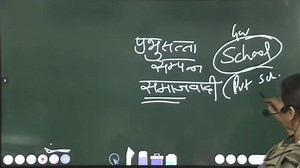 Gov
प्रभुसत्ता School
सम्पन्न
समाजवादी Pvt Sch.